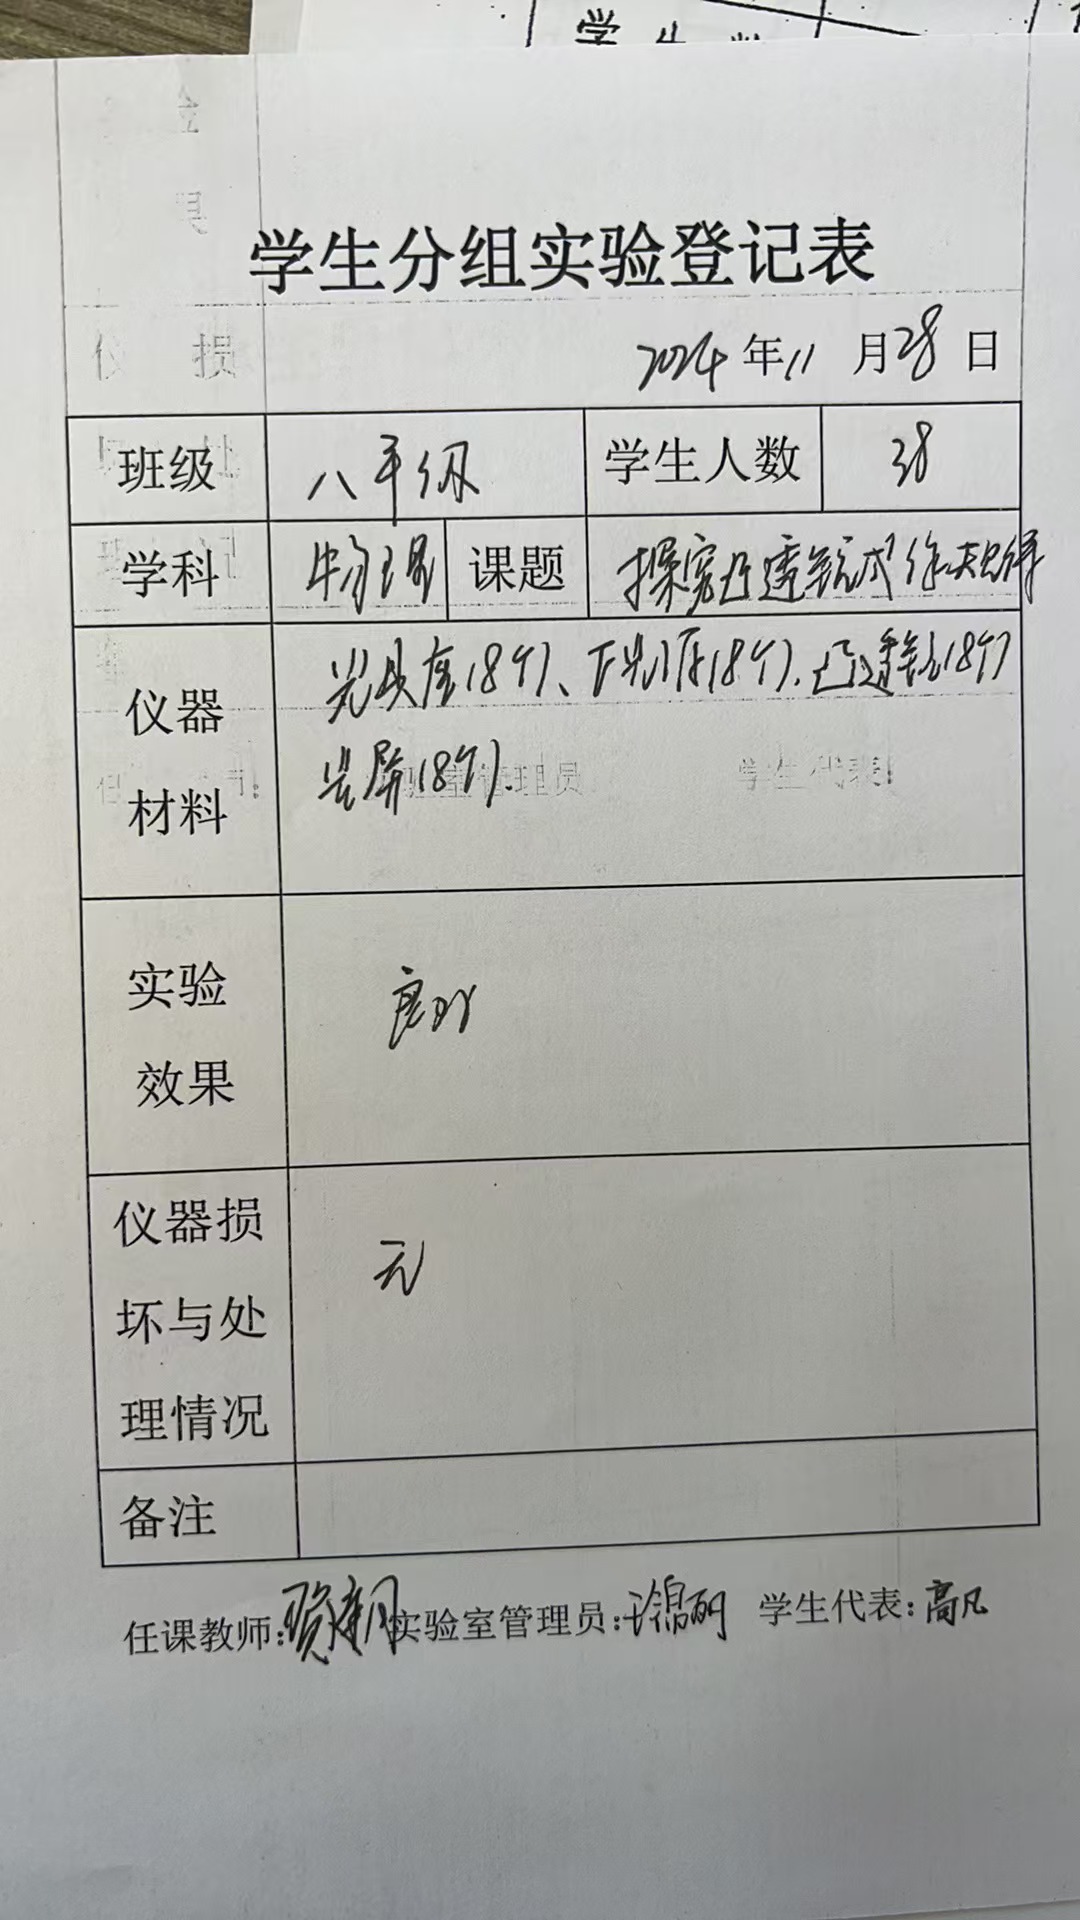 学生
学生分组实验登记表
2024年11月28日
班级 八年级 学生人数 38
学科 物理 课题 探究凸透镜成像规律
仪器 光具座18个、F光源18个、凸透镜18个
材料 光屏18个.
实验 良好
效果
仪器损 无
坏与处
理情况
备注
任课教师: 实验室管理员:于锦丽 学生代表:高凡